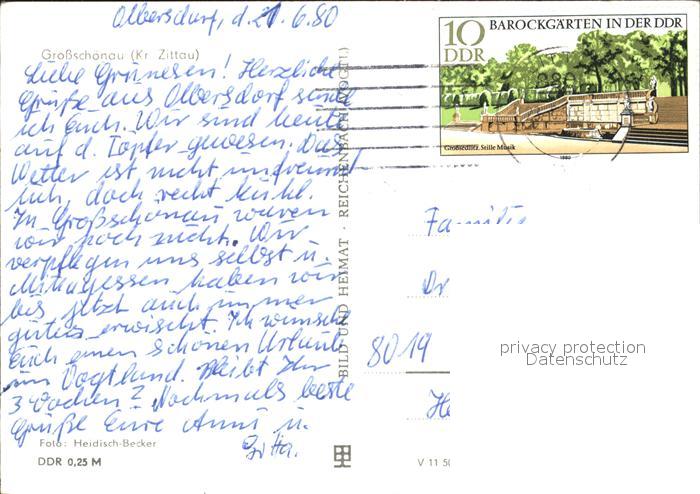 Olbersdorf, d. 21.6.80
Großschönau (Kr. Zittau)
Liebe Grünesen! Herzliche
Grüße aus Olbersdorf sende
ich Euch. Wir sind heute
auf d. Töpfer gewesen. Das
Wetter ist nicht unfreund
lich, doch recht kühl.
In Großschönau waren
wir noch nicht. Wir
verpflegen uns selbst u.
Mittagessen haben wir
bis jetzt auch immer
gutes erwischt. Ich wünsche
Euch einen schönen Urlaub
im Vogtland. Bleibt Ihr
3 Wochen? Nochmals beste
Grüße Eure Anni u.
Gitta.
Foto: Heidisch-Becker
DDR 0,25 M
BILD UND HEIMAT · REICHENBACH (VOGTL)
V 11 50
10
DDR
BAROCKGÄRTEN IN DER DDR
Großsedlitz, Stille Musik
1980
Familie
Dr
8019
He
privacy protection
Datenschutz